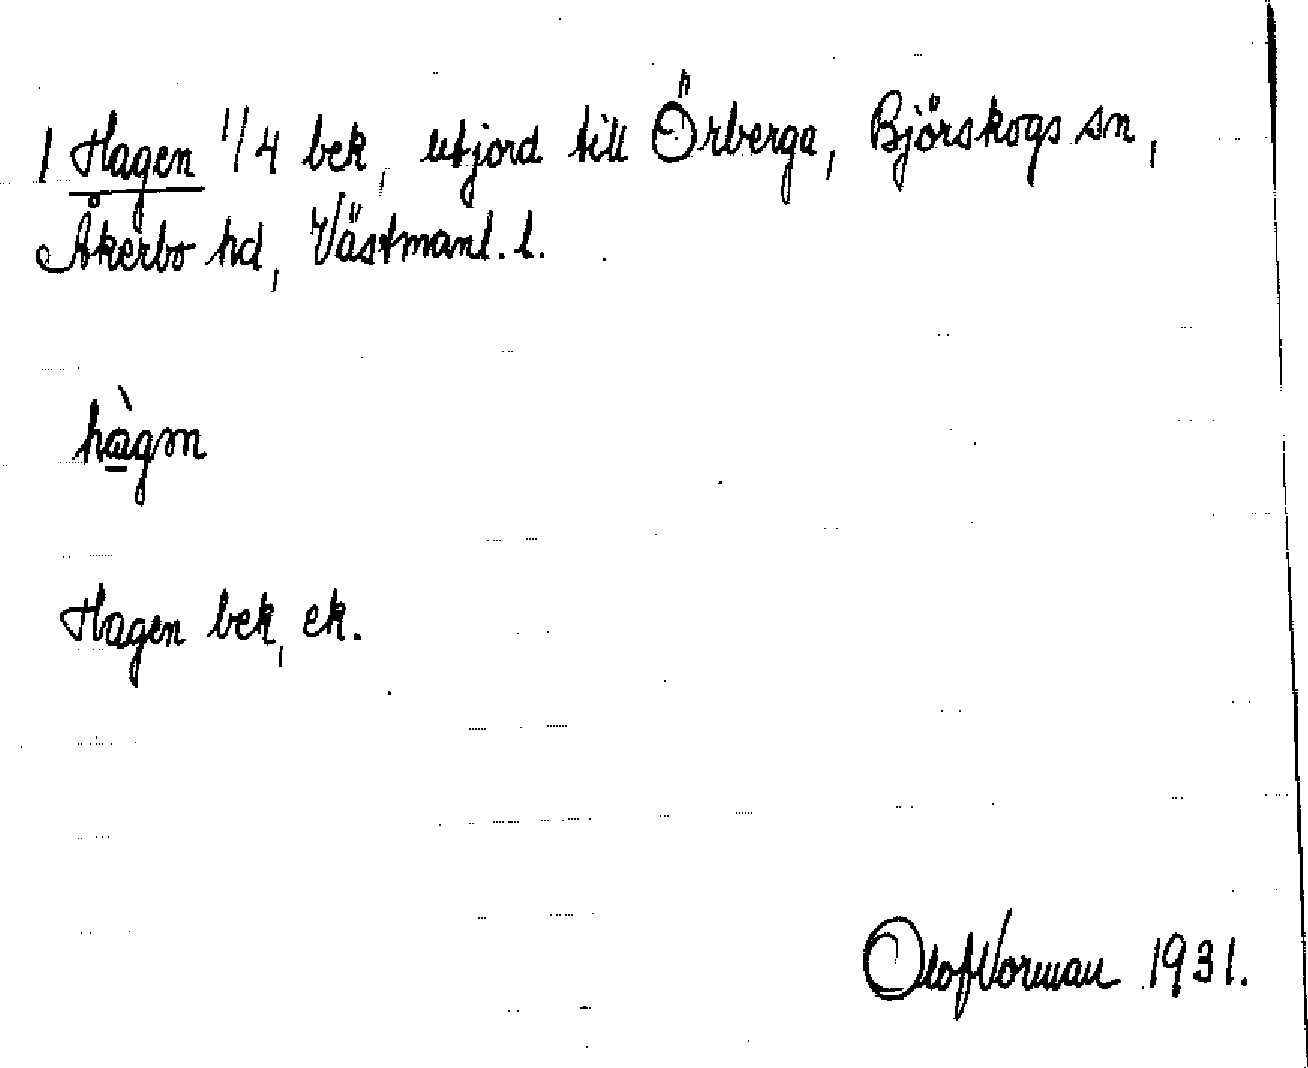 1 Hagen 1/4 bek, utjord till Örberga, Björskogs sn,
Åkerbo hd, Västmanl. l.
hàgm
Hagen bek, ek.
Olof Vorman 1931.